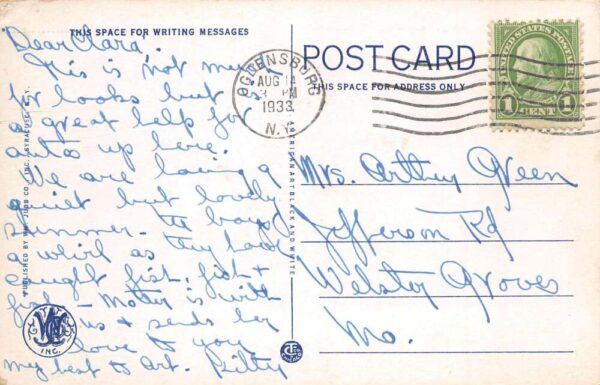 THIS SPACE FOR WRITING MESSAGES
Dear Clara.
This is not much
for looks but
a great help for
autos up here.
We are having a
quiet but lovely
summer. The boys
a whirl as they have
caught fish. fish +
fish — Mother is with
us + sends her
love to you
my best to Art.
PUBLISHED BY WM. JUBB CO., INC., SYRACUSE, N.Y.
INC.
OGDENSBURG
AUG 14
PM
1933
N.Y.
AMERICAN ART BLACK AND WHITE
POST CARD
THIS SPACE FOR ADDRESS ONLY
UNITED STATES POSTAGE
1 CENT 1
Mrs. Arthur Green
Jefferson Rd
Webster Groves
Mo.